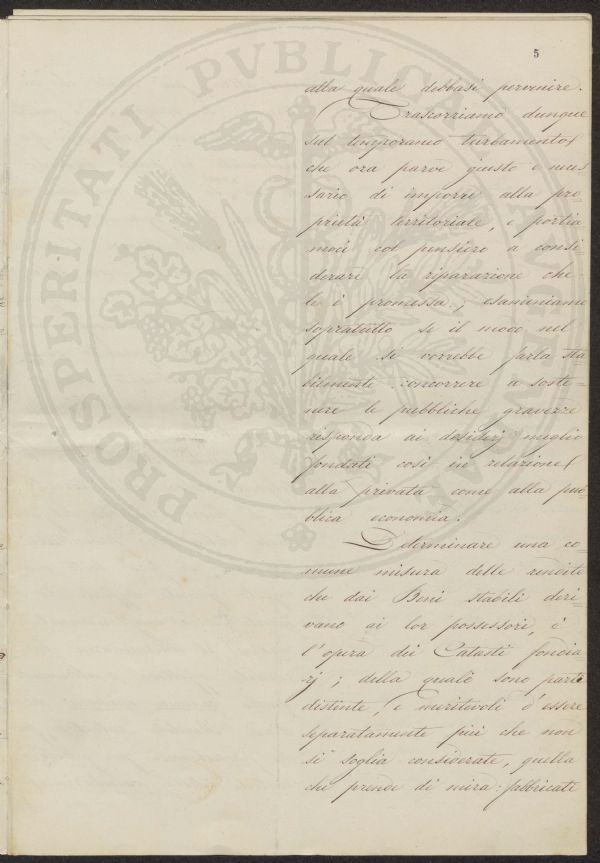 5
alla quale debbasi pervenire.
Trascorriamo dunque
sul temporaneo turbamento
che ora parve giusto e neces
sario di imporre alla pro=
prietà territoriale, e portia
moci col pensiero a consi=
derare la riparazione che
le è promessa; esaminiamo
sopratutto se il modo nel
quale si vorrebbe farla sta=
bilmente concorrere a soste=
nere le pubbliche gravezze
risponda ai desiderj meglio
fondati così in relazione
alla privata come alla pub=
blica economia.
Determinare una co=
mune misura delle rendite
che dai Beni stabili deri=
vano ai lor possessori, è
l'opera dei Catasti fondia=
rj; della quale sono parti
distinte, e meritevoli d'essere
separatamente più che non
si soglia considerate, quella
che prende di mira i fabbricati
PROSPERITATI PVBLICAE AVGENDAE